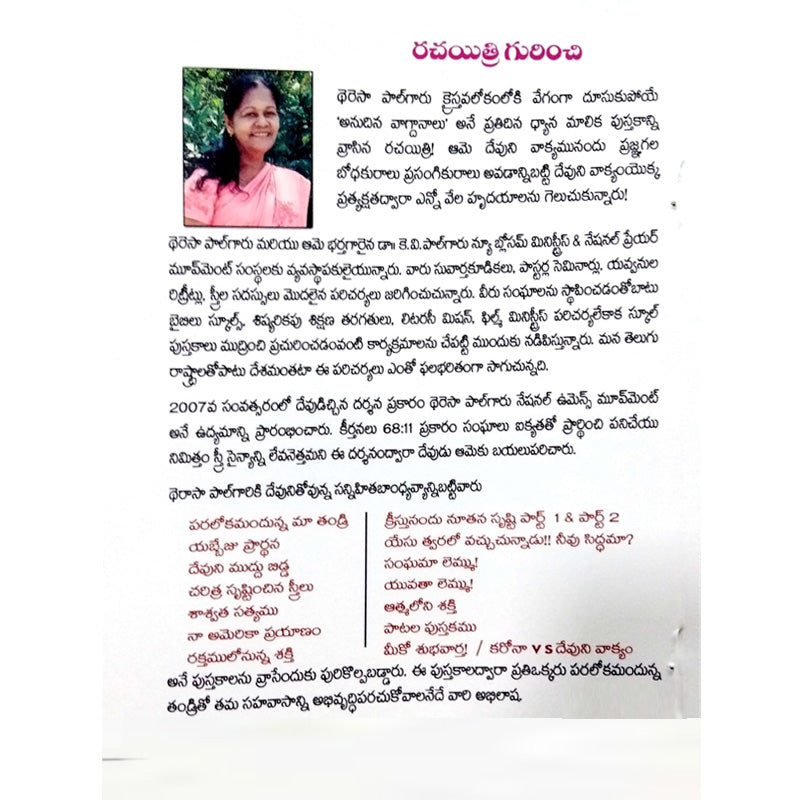 రచయిత్రి గురించి
థెరెసా పాల్‌గారు క్రైస్తవలోకంలోకి వేగంగా దూసుకుపోయే
'అనుదిన వాగ్దానాలు' అనే ప్రతిదిన ధ్యాన మాలిక పుస్తకాన్ని
వ్రాసిన రచయిత్రి! ఆమె దేవుని వాక్యమునందు ప్రజ్ఞగల
బోధకురాలు ప్రసంగికురాలు అవడాన్నిబట్టి దేవుని వాక్యంయొక్క
ప్రత్యక్షతద్వారా ఎన్నో వేల హృదయాలను గెలుచుకున్నారు!
థెరెసా పాల్‌గారు మరియు ఆమె భర్తగారైన డా॥ కె.వి.పాల్‌గారు న్యూ బ్లోసమ్ మినిస్ట్రీస్ & నేషనల్ ప్రేయర్
మూవ్‌మెంట్ సంస్థలకు వ్యవస్థాపకులైయున్నారు. వారు సువార్తకూడికలు, పాస్టర్ల సెమినార్లు, యవ్వనుల
రిట్రీట్లు, స్త్రీల సదస్సులు మొదలైన పరిచర్యలు జరిగించుచున్నారు. వీరు సంఘాలను స్థాపించడంతోబాటు
బైబిలు స్కూల్స్, శిష్యరికపు శిక్షణ తరగతులు, లిటరసీ మిషన్, ఫిల్మ్ మినిస్ట్రీస్ పరిచర్యలేకాక స్కూల్
పుస్తకాలు ముద్రించి ప్రచురించడంవంటి కార్యక్రమాలను చేపట్టి ముందుకు నడిపిస్తున్నారు. మన తెలుగు
రాష్ట్రాలతోపాటు దేశమంతటా ఈ పరిచర్యలు ఎంతో ఫలభరితంగా సాగుచున్నది.
2007వ సంవత్సరంలో దేవుడిచ్చిన దర్శన ప్రకారం థెరెసా పాల్‌గారు నేషనల్ ఉమెన్స్ మూవ్‌మెంట్
అనే ఉద్యమాన్ని ప్రారంభించారు. కీర్తనలు 68:11 ప్రకారం సంఘాలు ఐక్యతతో ప్రార్థించి పనిచేయు
నిమిత్తం స్త్రీ సైన్యాన్ని లేవనెత్తమని ఈ దర్శనంద్వారా దేవుడు ఆమెకు బయలుపరిచారు.
థెరాసా పాల్‌గారికి దేవునితోవున్న సన్నిహితబాంధ్యవ్యాన్నిబట్టివారు
పరలోకమందున్న మా తండ్రి
యబ్బేజు ప్రార్థన
దేవుని ముద్దు బిడ్డ
చరిత్ర సృష్టించిన స్త్రీలు
శాశ్వత సత్యము
నా అమెరికా ప్రయాణం
రక్తములోనున్న శక్తి
క్రీస్తునందు నూతన సృష్టి పార్ట్ 1 & పార్ట్ 2
యేసు త్వరలో వచ్చుచున్నాడు!! నీవు సిద్ధమా?
సంఘమా లెమ్ము!
యువతా లెమ్ము!
ఆత్మలోని శక్తి
పాటల పుస్తకము
మీకో శుభవార్త! / కరోనా vs దేవుని వాక్యం
అనే పుస్తకాలను వ్రాసేందుకు పురికొల్పబడ్డారు. ఈ పుస్తకాలద్వారా ప్రతిఒక్కరు పరలోకమందున్న
తండ్రితో తమ సహవాసాన్ని అభివృద్ధిపరచుకోవాలనేదే వారి అభిలాష.